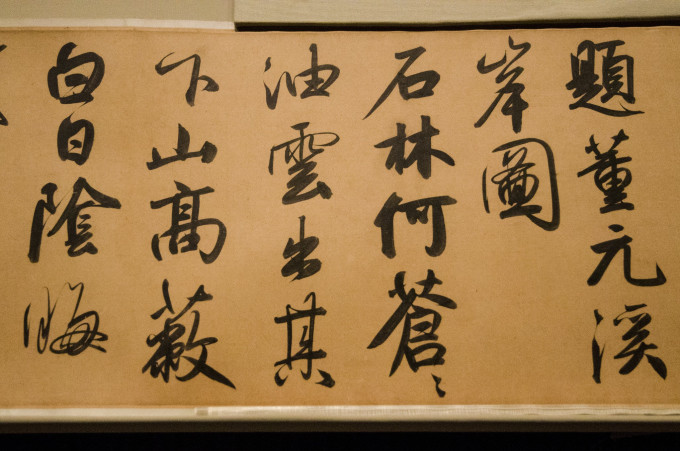 題董元溪
岸圖
石林何蒼〻
油雲出其
下山高蔽
白日陰晦